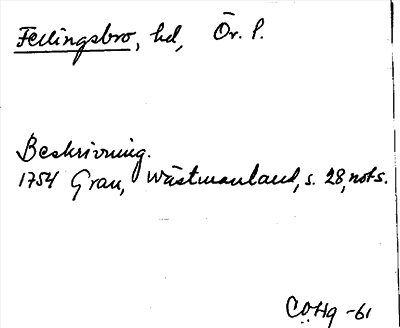 Fellingsbro, hd, Ör. l.
Beskrivning.
1754 Grau, Wästmanland, s. 28, not s.
COHq -61